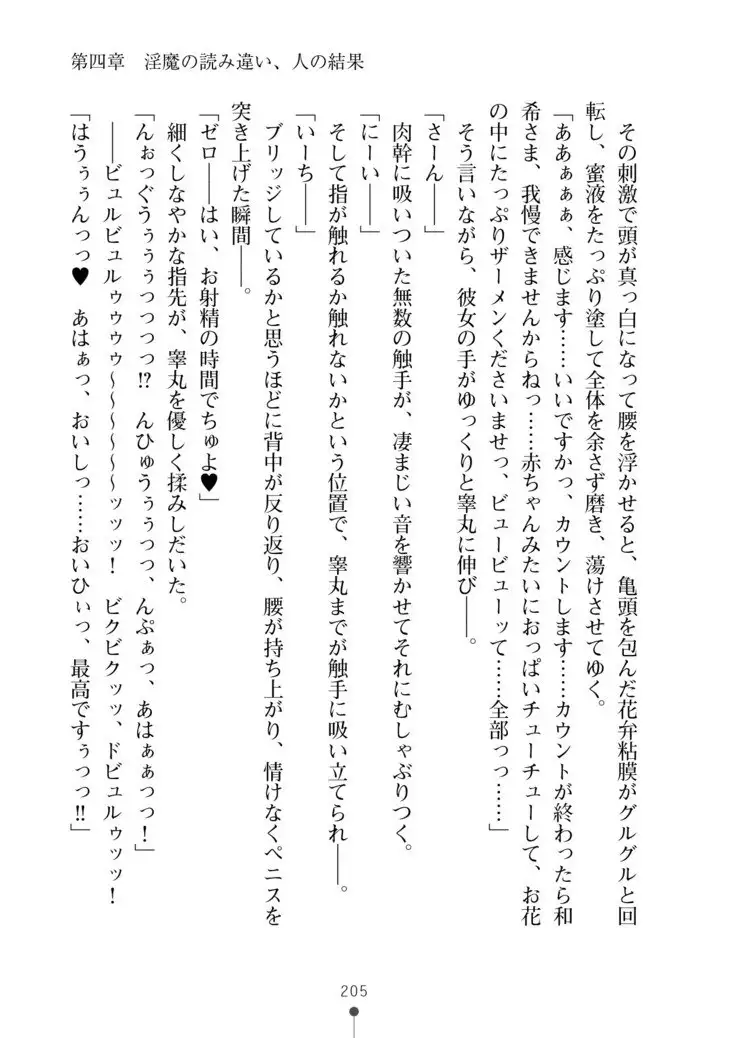 第四章　淫魔の読み違い、人の結果
　その刺激で頭が真っ白になって腰を浮かせると、亀頭を包んだ花弁粘膜がグルグルと回
転し、蜜液をたっぷり塗して全体を余さず磨き、蕩けさせてゆく。
「ああぁぁぁ、感じます……いいですかっ、カウントします……カウントが終わったら和
希さま、我慢できませんからねっ……赤ちゃんみたいにおっぱいチューチューして、お花
の中にたっぷりザーメンくださいませっ、ビュービューッて……全部っっ……」
　そう言いながら、彼女の手がゆっくりと睾丸に伸び――。
「さーん――」
　肉幹に吸いついた無数の触手が、凄まじい音を響かせてそれにむしゃぶりつく。
「にーい――」
　そして指が触れるか触れないかという位置で、睾丸までが触手に吸い立てられ――。
「いーち――」
　ブリッジしているかと思うほどに背中が反り返り、腰が持ち上がり、情けなくペニスを
突き上げた瞬間――。
「ゼロ――はい、お射精の時間でちゅよ♥」
　細くしなやかな指先が、睾丸を優しく揉みしだいた。
「んぉっぐうぅぅぅっっっっ!?　んひゅうぅぅっっ、んぷぁっ、あはぁぁっっ！」
　――ビュルビュルゥゥゥゥ～～～～～～ッッッ！　ビクビクッッ、ドビュルゥッッ！
「はうぅぅんっっ♥　あはぁっ、おいしっ……おいひぃっ、最高ですぅっっ!!」
205